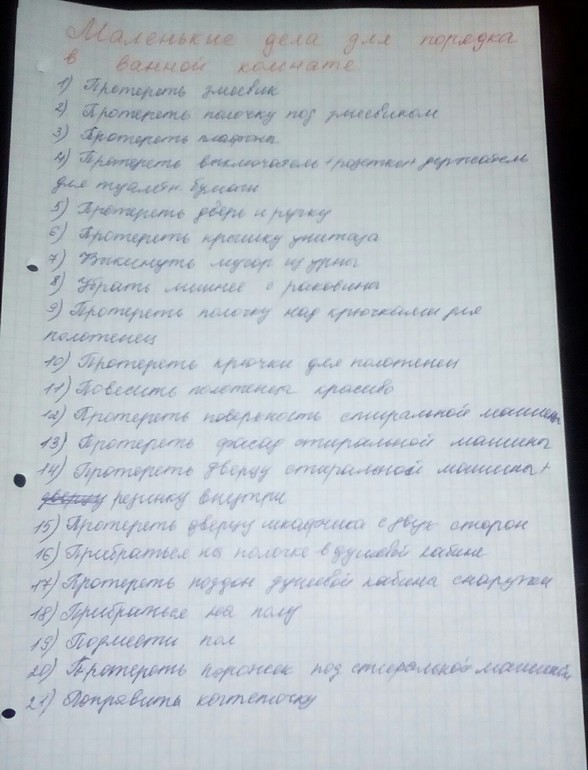 Маленькие дела для порядка
в ванной комнате
1) Протереть змеевик
2) Протереть полочку под змеевиком
3) Протереть плафоны
4) Протереть выключатель + розетка + держатель
для туалетн. бумаги
5) Протереть дверь и ручку
6) Протереть крышку унитаза
7) Выкинуть мусор из урны
8) Убрать лишнее с раковины
9) Протереть полочку над крючками для
полотенец
10) Протереть крючки для полотенец
11) Повесить полотенца красиво
12) Протереть поверхность стиральной машины
13) Протереть фасад стиральной машины
14) Протереть дверцу стиральной машины +
дверцу резинку внутри
15) Протереть дверцу шкафчика с двух сторон
16) Прибраться на полочке в душевой кабине
17) Протереть поддон душевой кабины снаружи
18) Прибраться на полу
19) Подмести пол
20) Протереть порожек под стиральной машиной
21) Поправить когтеточку